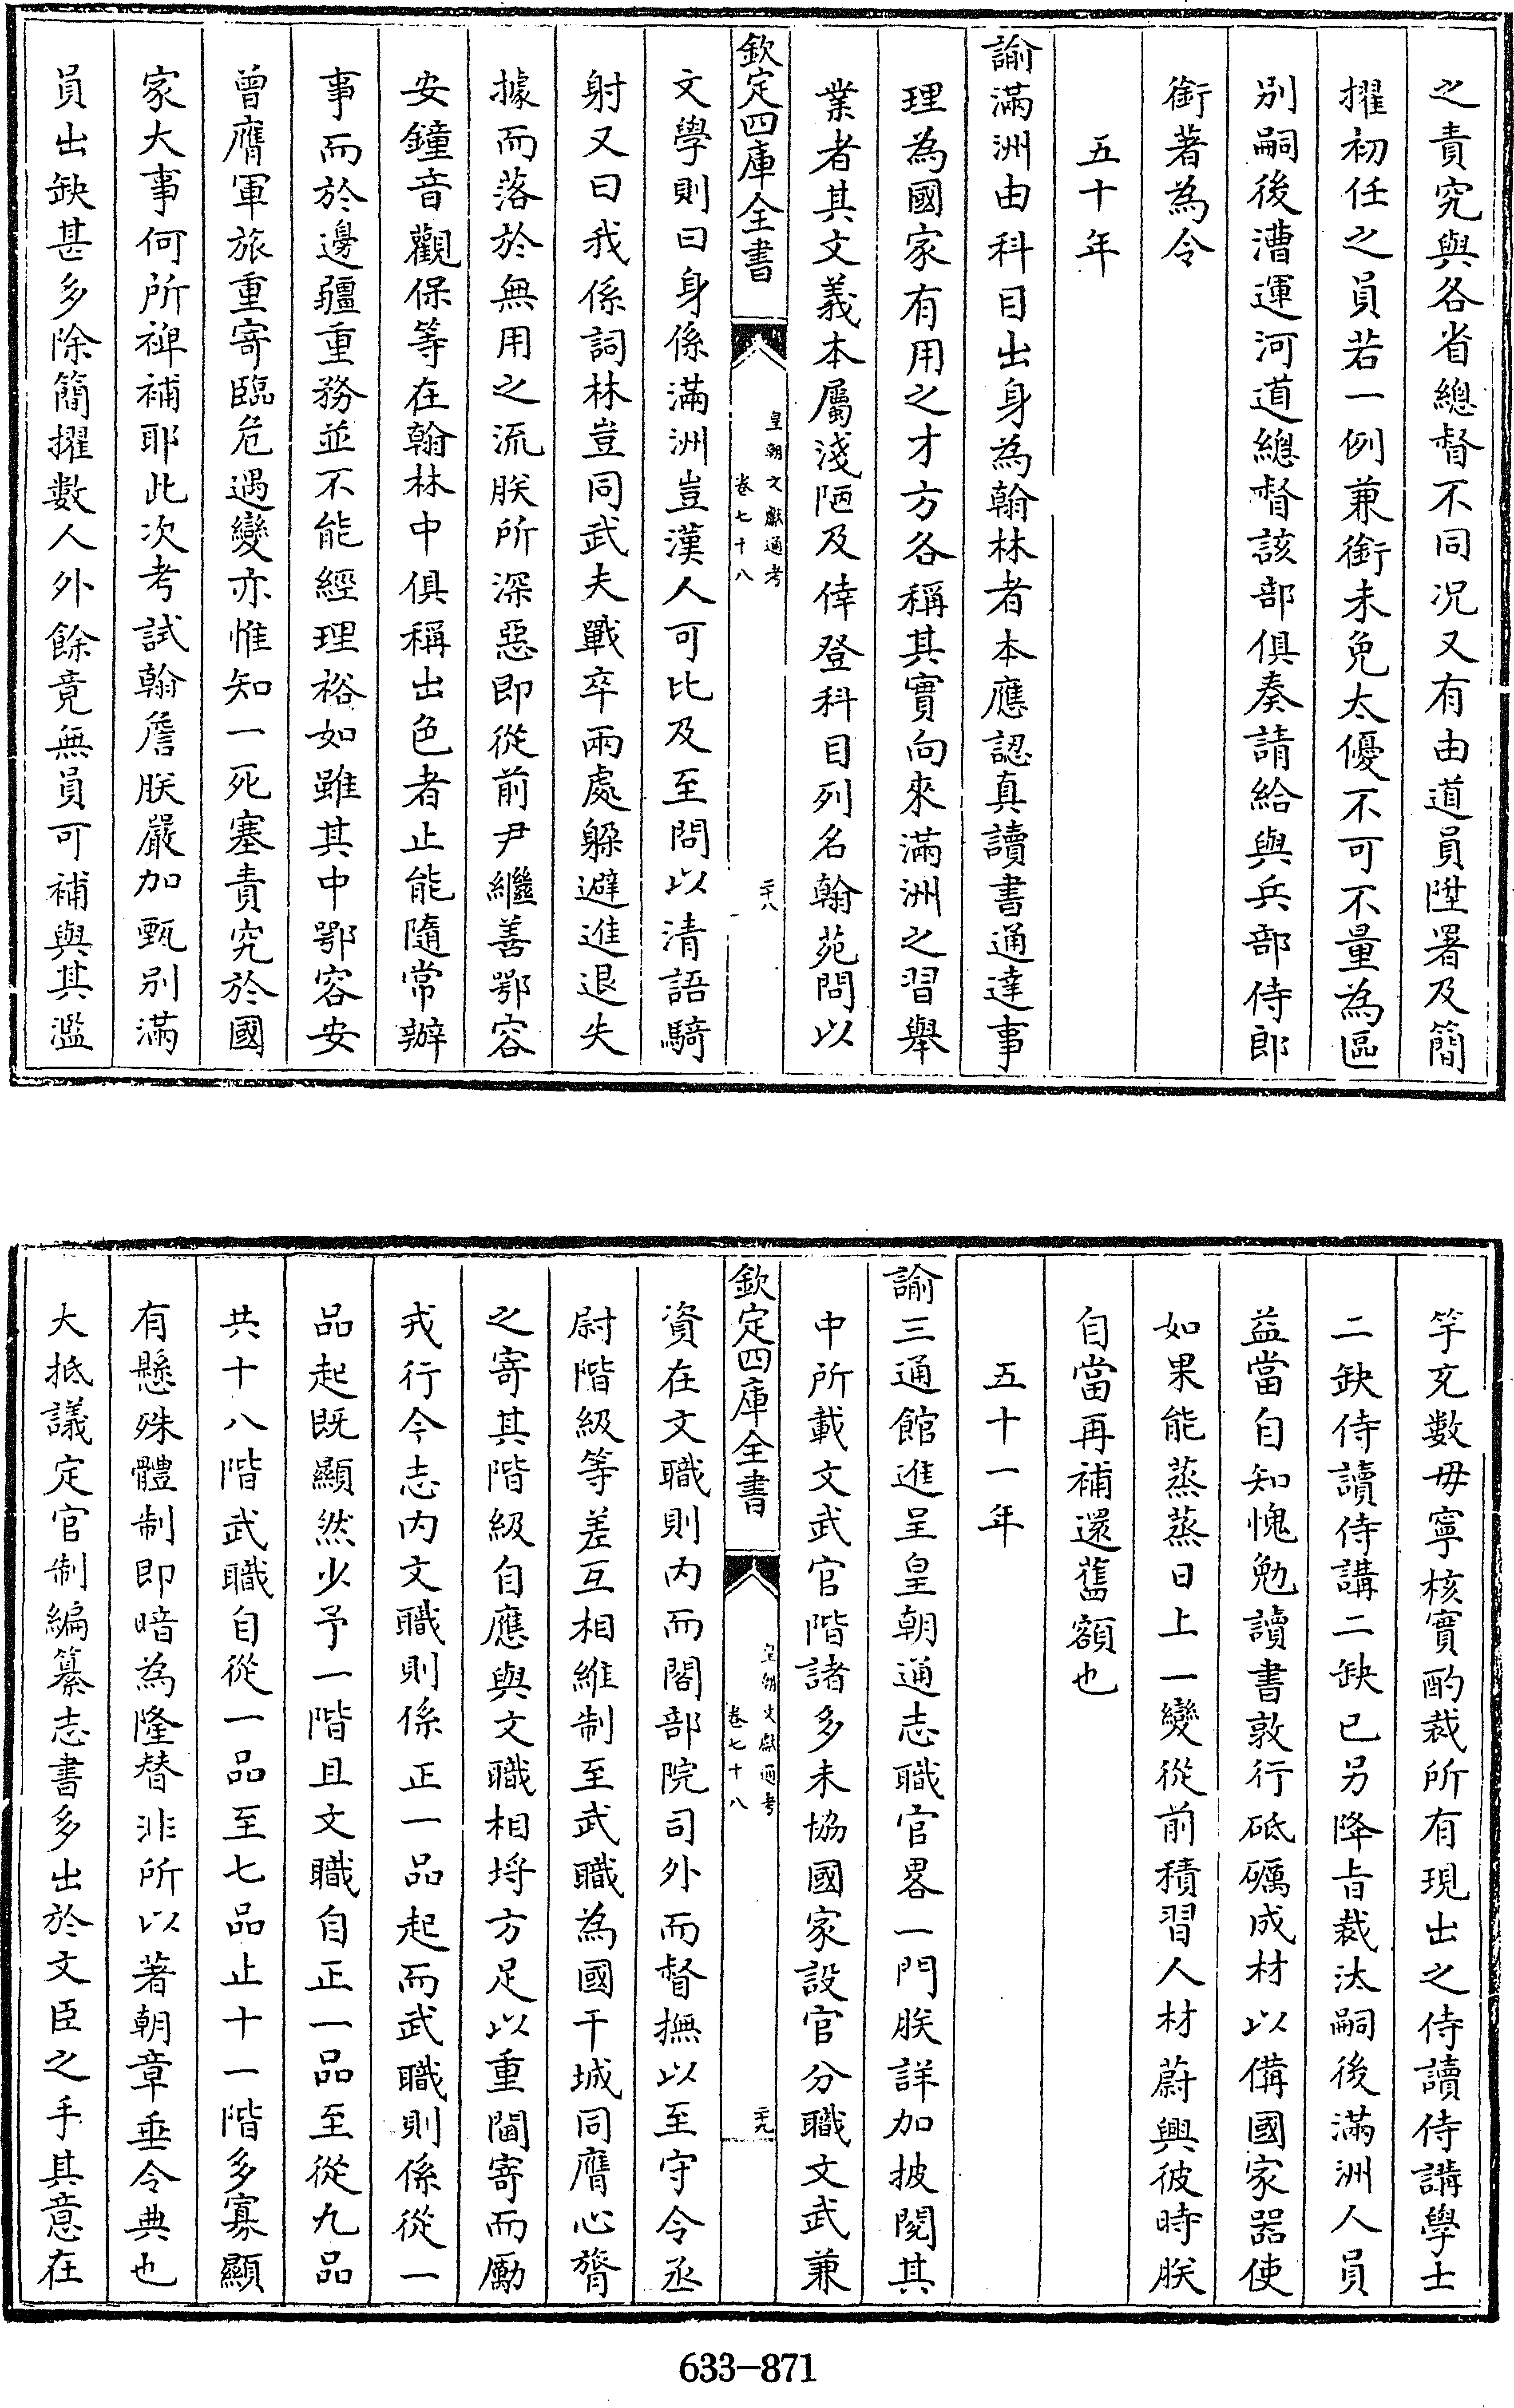 之責究與各省總督不同况又有由道員陞署及簡
擢初任之員若一例兼銜未免太優不可不量為區
别嗣後漕運河道總督該部俱奏請給與兵部侍郎
銜著為令
五十年
諭滿洲由科目出身為翰林者本應認真讀書通達事
理為國家有用之才方各稱其實向來滿洲之習舉
業者其文義本屬淺陋及倖登科目列名翰苑問以
欽定四庫全書
皇朝文獻通考
卷七十八
二十八
文學則曰身係滿洲豈漢人可比及至問以清語騎
射又曰我係詞林豈同武夫戰卒兩處躲避進退失
據而落於無用之流朕所深惡即從前尹繼善鄂容
安鐘音觀保等在翰林中俱稱出色者止能隨常辦
事而於邊疆重務並不能經理裕如雖其中鄂容安
曾膺軍旅重寄臨危遇變亦惟知一死塞責究於國
家大事何所裨補耶此次考試翰詹朕嚴加甄别滿
員出缺甚多除簡擢數人外餘竟無員可補與其濫
竽充數毋寧核實酌裁所有現出之侍讀侍講學士
二缺侍讀侍講二缺已另降㫖裁汰嗣後滿洲人員
益當自知愧勉讀書敦行砥礪成材以備國家器使
如果能蒸蒸日上一變從前積習人材蔚興彼時朕
自當再補還舊額也
五十一年
諭三通館進呈皇朝通志職官畧一門朕詳加披閱其
中所載文武官階諸多未協國家設官分職文武兼
欽定四庫全書
皇朝文獻通考
卷七十八
二十九
資在文職則内而閣部院司外而督撫以至守令丞
尉階級等差互相維制至武職為國干城同膺心膂
之寄其階級自應與文職相埒方足以重閫寄而勵
戎行今志内文職則係正一品起而武職則係從一
品起既顯然少予一階且文職自正一品至從九品
共十八階武職自從一品至七品止十一階多寡顯
有懸殊體制即暗為隆替非所以著朝章垂令典也
大抵議定官制編纂志書多出於文臣之手其意在
633-871